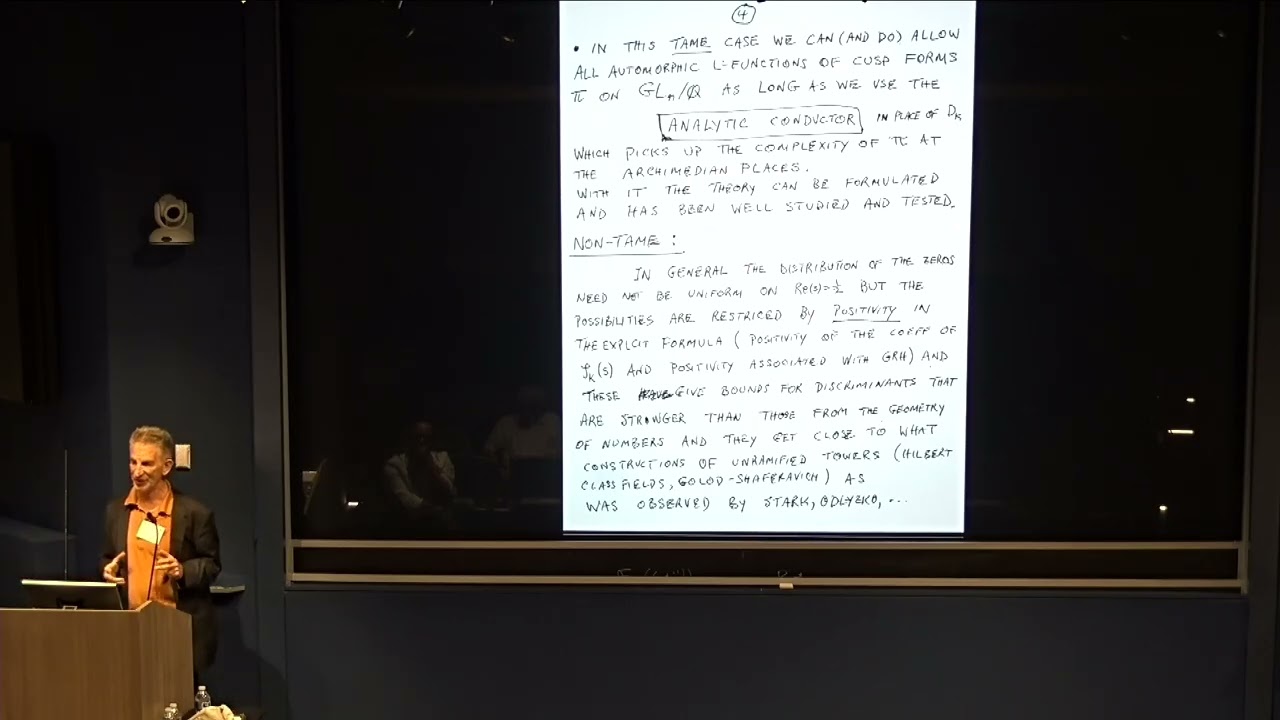 ④
• IN THIS TAME CASE WE CAN (AND DO) ALLOW
ALL AUTOMORPHIC L-FUNCTIONS OF CUSP FORMS
π ON GLₙ/Q AS LONG AS WE USE THE
ANALYTIC CONDUCTOR IN PLACE OF D_K
WHICH PICKS UP THE COMPLEXITY OF π AT
THE ARCHIMEDIAN PLACES.
WITH IT THE THEORY CAN BE FORMULATED
AND HAS BEEN WELL STUDIED AND TESTED.
NON-TAME :
IN GENERAL THE DISTRIBUTION OF THE ZEROS
NEED NOT BE UNIFORM ON Re(s)=½ BUT THE
POSSIBILITIES ARE RESTRICED BY POSITIVITY IN
THE EXPLCIT FORMULA ( POSITIVITY OF THE COEFF OF
ζ_K(s) AND POSITIVITY ASSOCIATED WITH GRH) AND
THESE GIVE BOUNDS FOR DISCRIMINANTS THAT
ARE STRONGER THAN THOSE FROM THE GEOMETRY
OF NUMBERS AND THEY GET CLOSE TO WHAT
CONSTRUCTIONS OF UNRAMIFIED TOWERS (HILBERT
CLASS FIELDS, GOLOD-SHAFERAVICH) AS
WAS OBSERVED BY STARK, ODLYZKO, ...